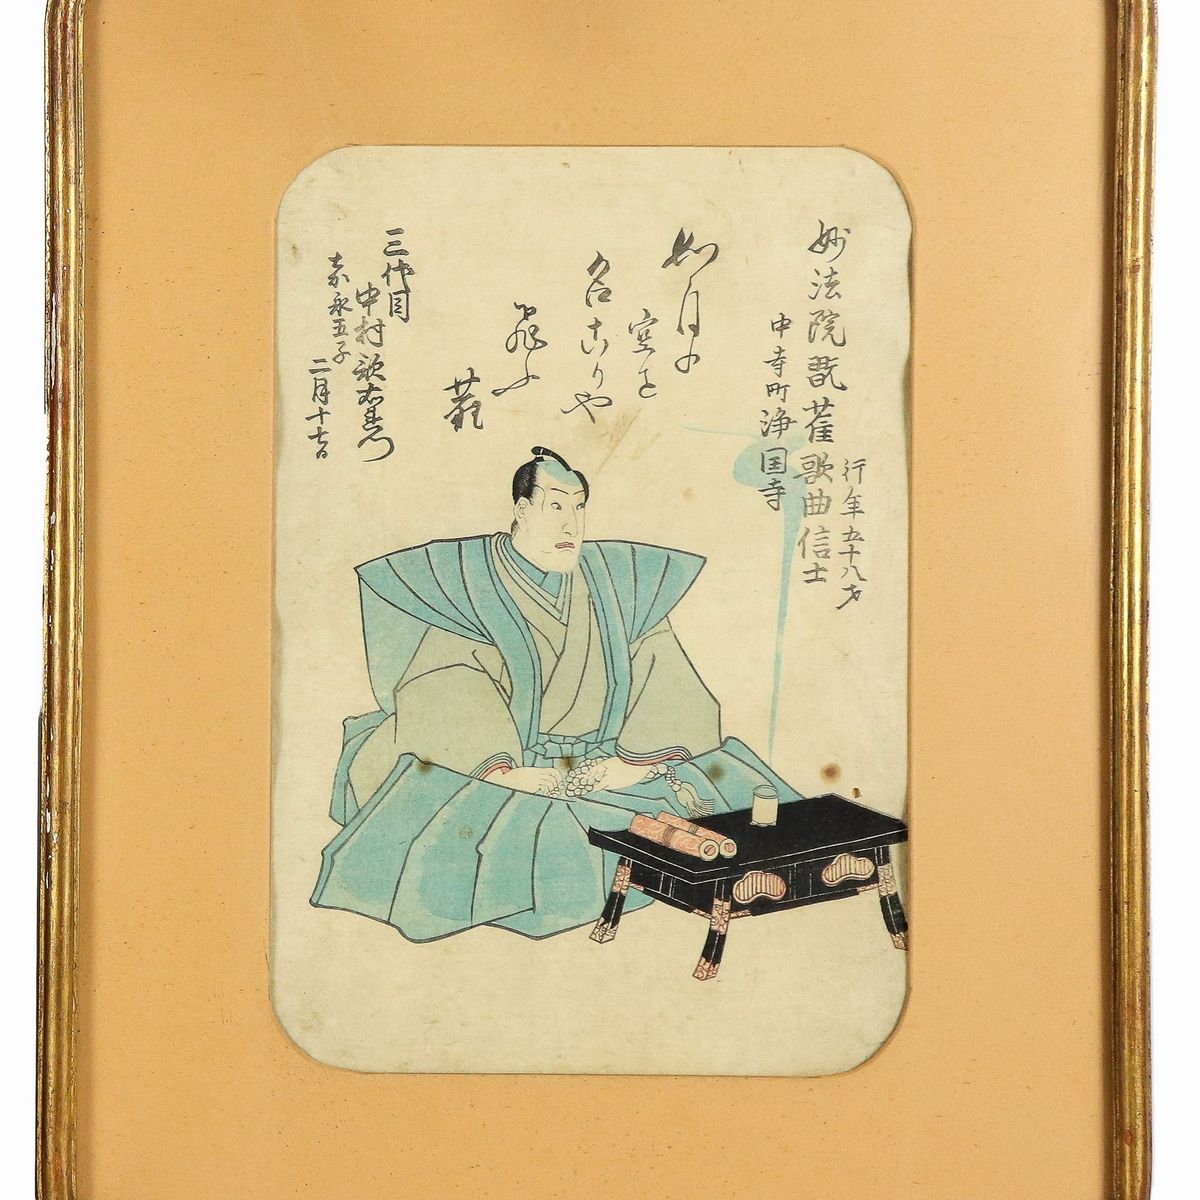 妙法院翫雀歌曲信士
行年五十八才
中寺町浄国寺
如月の
空を
名古りや
飛ふ
雀
三代目
中村歌右衛門
嘉永五子
二月十七日